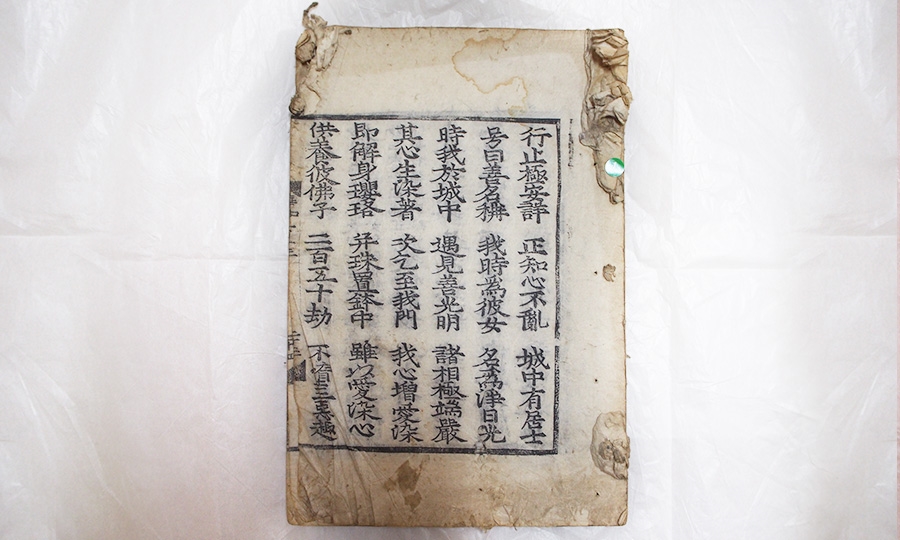 行止極安詳 正知心不亂 城中有居士
号曰善名稱 我時爲彼女 名爲淨日光
時我於城中 遇見善光明 諸相極端嚴
其心生染著 次乞至我門 我心增愛染
即解身瓔珞 并珠置鉢中 雖以愛染心
供養彼佛子 二百五十劫 不墮三惡趣